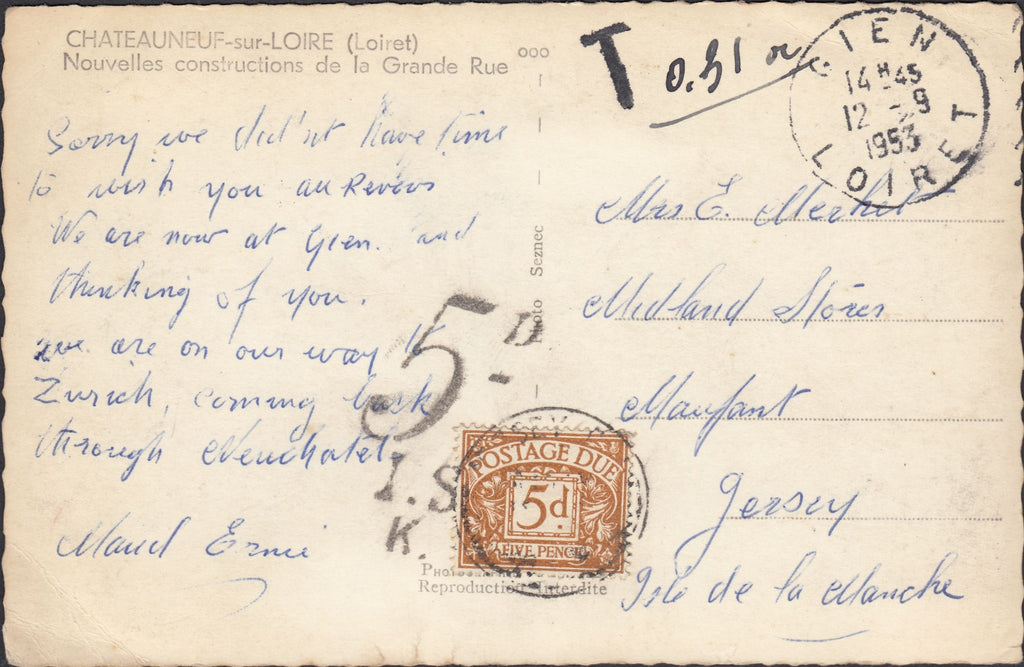 CHATEAUNEUF-sur-LOIRE (Loiret)
Nouvelles constructions de la Grande Rue
ooo
T 0.51
GIEN
14H45
12 -9
1953
LOIRET
Sorry we did'nt have time
to wish you au Revoir
We are now at Gien. and
thinking of you.
we are on our way to
Zurich, coming back
through Neuchatel
Maud Ernie
Photo Seznec
Mrs E. Merhet
Midland Stores
Maufant
Jersey
Isle de la Manche
5D
I.S
K.
POSTAGE DUE
5d.
FIVE PENCE
Reproduction Interdite